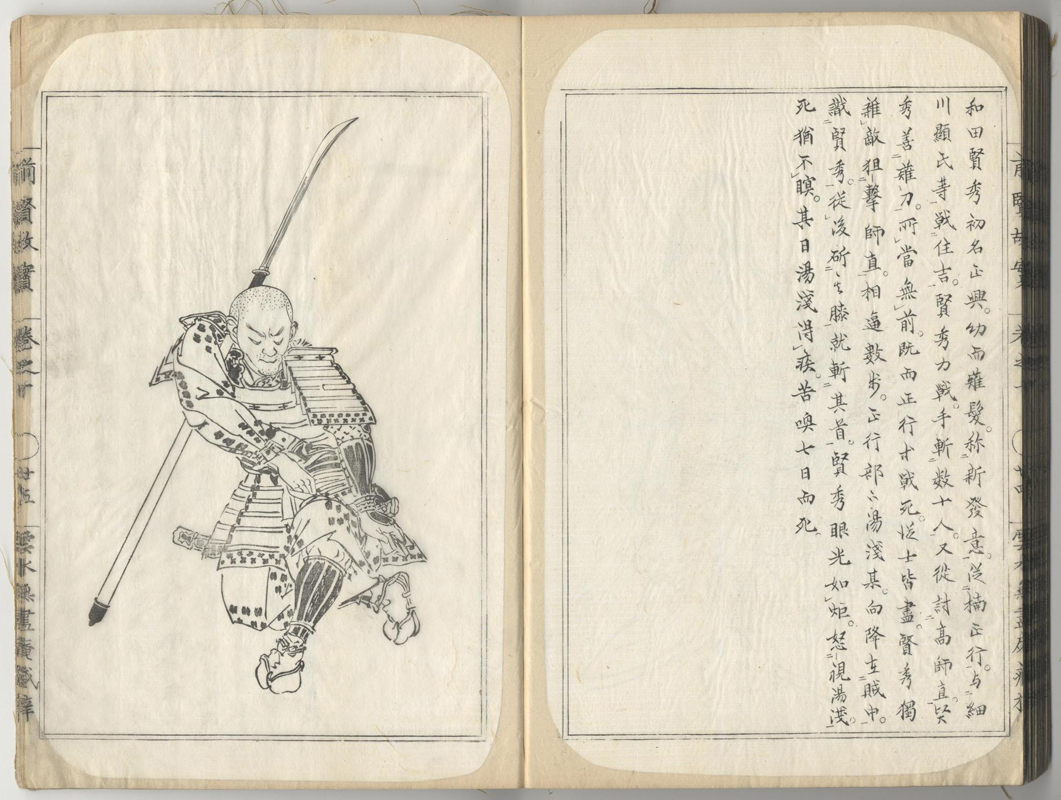 和田賢秀初名正興。幼而薙髮。称新發意。従楠正行。与細
川顯氏等戰住吉。賢秀力戰。手斬数十人。又從討高師直賢
秀善薙刀。所當無前。既而正行等戰死。従士皆盡。賢秀獨
雜敵狙擊師直。相逼數步。正行部下湯淺某。向降在賊中。
識賢秀。從後斫其膝就斬其首。賢秀眼光如炬。怒視湯淺。
死猶不瞑。其日湯淺得疾。苦嗅七日而死
前賢故實
卷之十
廿五